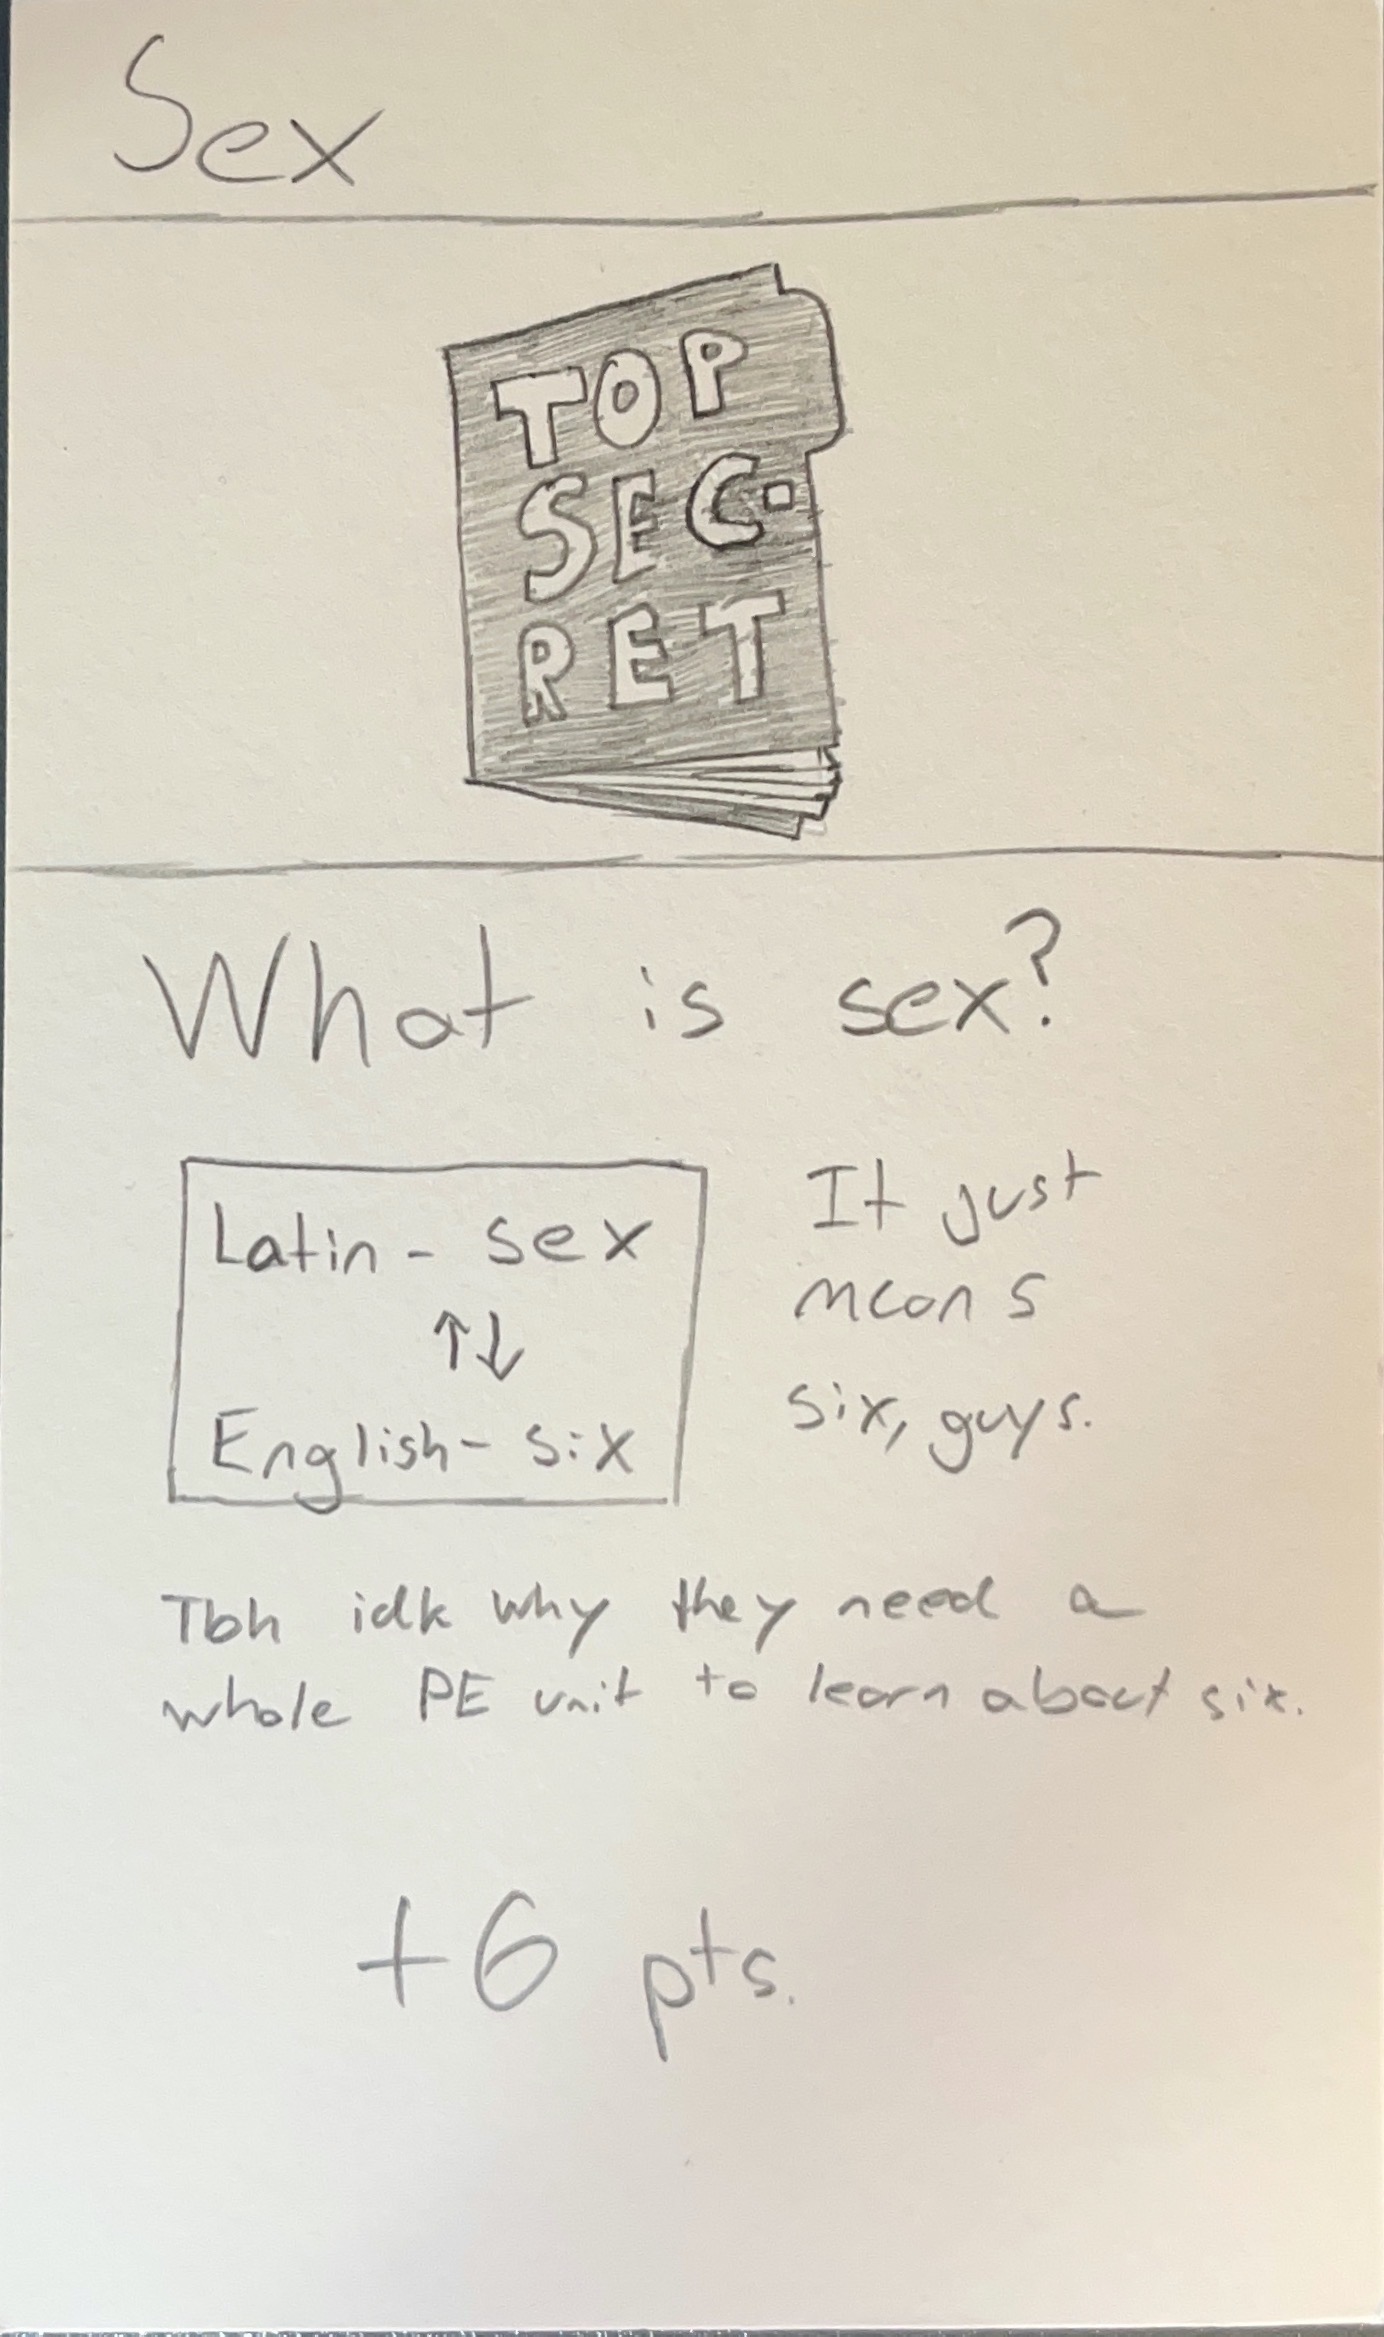 Sex
TOP
SEC-
RET
What is sex?
Latin - sex
↑↓
English - six
It just
means
six, guys.
Tbh idk why they need a
whole PE unit to learn about six.
+6 pts.